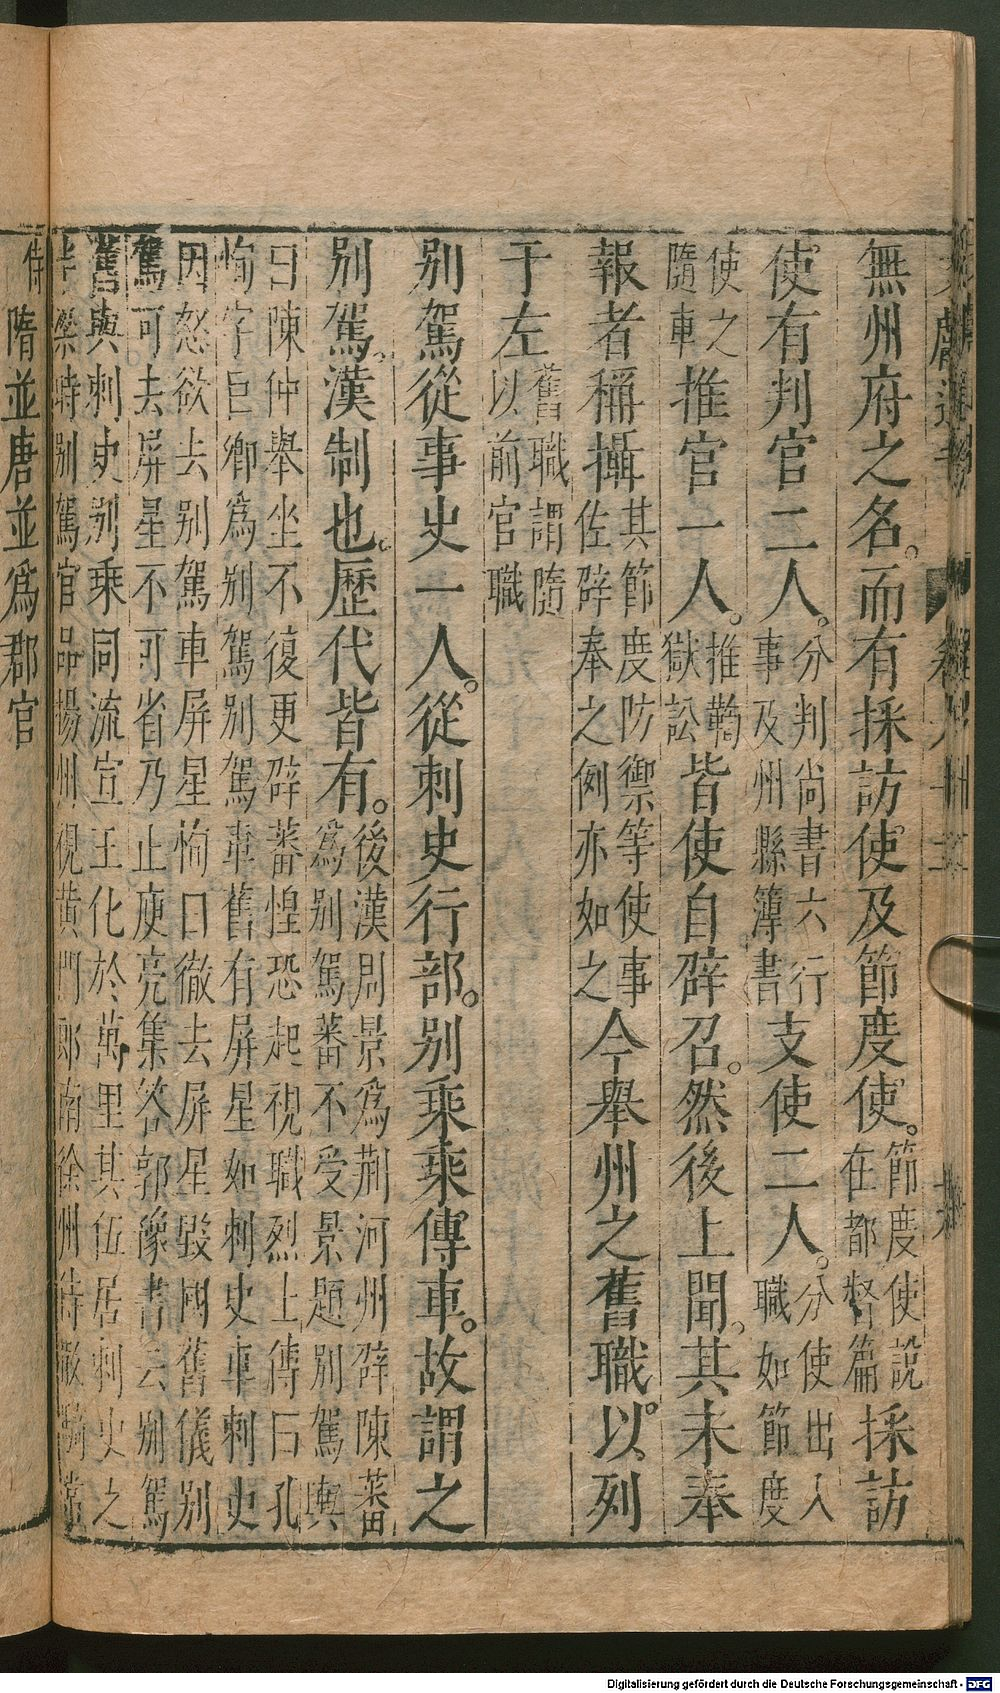 無州府之名。而有採訪使及節度使。節度使說在都督篇採訪
使有判官二人。分判尚書六行事及州縣簿書支使二人。分使出入職如節度
使之隨車推官一人。推鞫獄訟皆使自辟召。然後上聞。其未奉
報者稱攝其節度防禦等使事佐辟奉之例亦如之今舉州之舊職。以列
于左舊職謂隨以前官職
別駕從事史一人。從刺史行部。別乘乘傳車。故謂之
別駕。漢制也。歷代皆有。後漢周景爲荊河州辟陳蕃爲別駕蕃不受景題別駕輿
曰陳仲舉坐不復更辟蕃惶恐起視職烈士傳曰孔
恂字巨卿爲別駕別駕車舊有屏星如刺史車刺史
因怒欲去別駕車屏星恂曰徹去屏星毀國舊儀別
駕可去屏星不可省乃止庾亮集答郭豫書云別駕
舊與刺史別乘同流宣王化於萬里其任居刺史之
半梁時別駕官品揚州視黃門郎南徐州
隋並唐並爲郡官
Digitalisierung gefördert durch die Deutsche Forschungsgemeinschaft - DFG